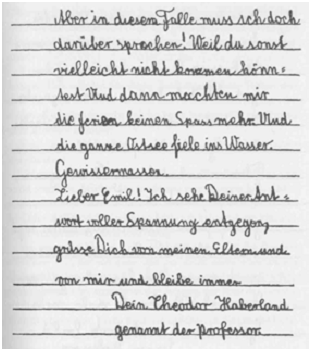 Aber in diesem Falle muss ich doch
darüber sprechen! Weil du sonst
vielleicht nicht kommen könn=
test Und dann machten mir
die Ferien keinen Spass mehr. Und
die ganze Ostsee fiele ins Wasser.
Gewissermassen.
Lieber Emil! Ich sehe Deiner Ant=
wort voller Spannung entgegen,
grüsse Dich von meinen Eltern und
von mir und bleibe immer
Dein Theodor Haberland
genannt der Professor.